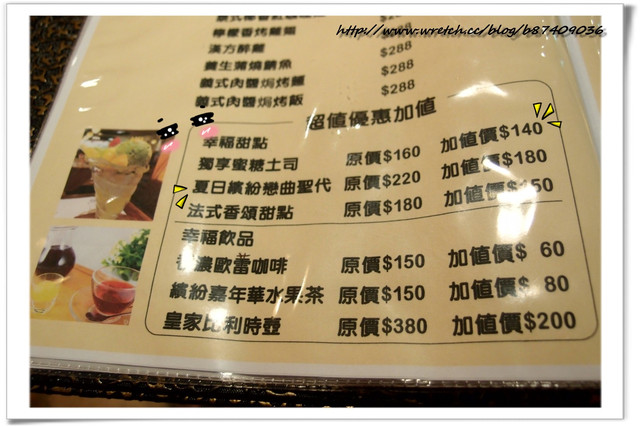 http://www.wretch.cc/blog/b87409036
檸檬香烤雞腿 $288
漢方醉雞 $288
養生蒲燒鯛魚 $288
義式肉醬焗烤麵 $288
義式肉醬焗烤飯 $288
超值優惠加值
幸福甜點
獨享蜜糖土司 原價$160 加值價$140
夏日繽紛戀曲聖代 原價$220 加值價$180
法式香頌甜點 原價$180 加值價$150
幸福飲品
香濃歐蕾咖啡 原價$150 加值價$ 60
繽紛嘉年華水果茶 原價$150 加值價$ 80
皇家比利時壺 原價$380 加值價$200